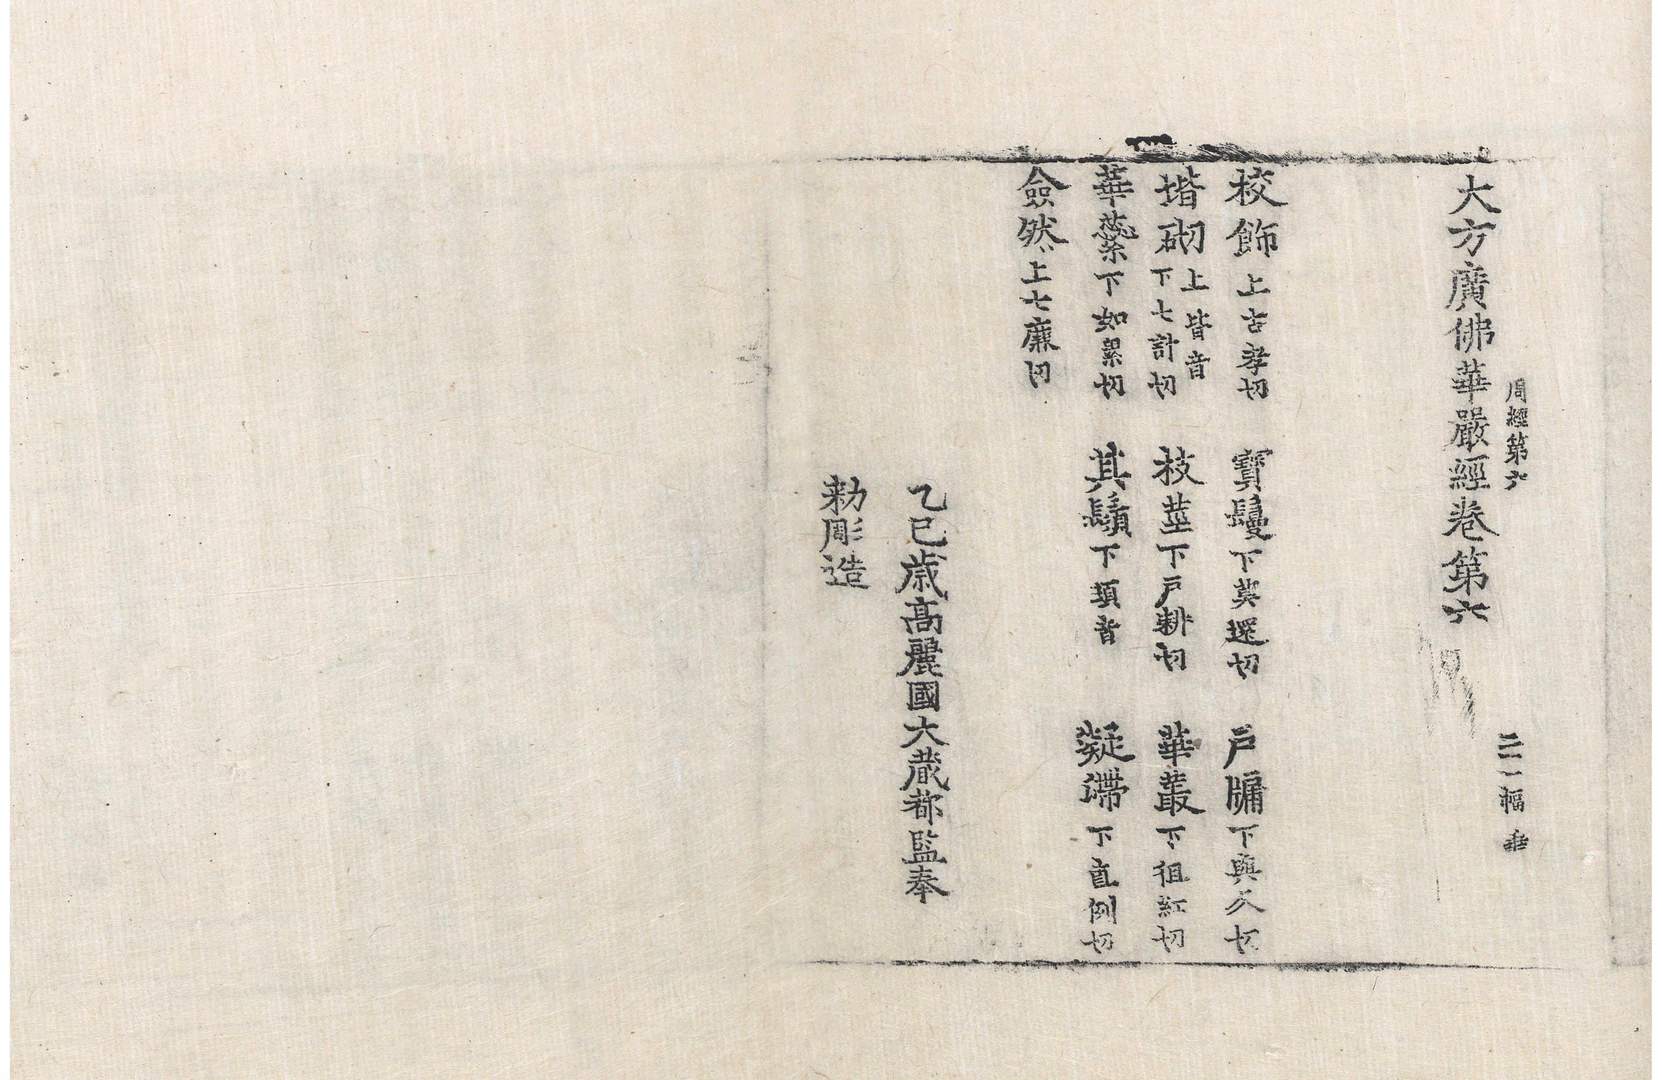 周經第六
二一幅
大方廣佛華嚴經卷第六
校飾上古孝切 寶鬘下莫還切 戶牖下與久切
堦砌上皆音下七計切 枝莖下戶耕切 華叢下徂紅切
華蘂下如累切 其鬚下須音 凝滯下直例切
僉然上七廉切
乙巳歲高麗國大藏都監奉
勑彫造